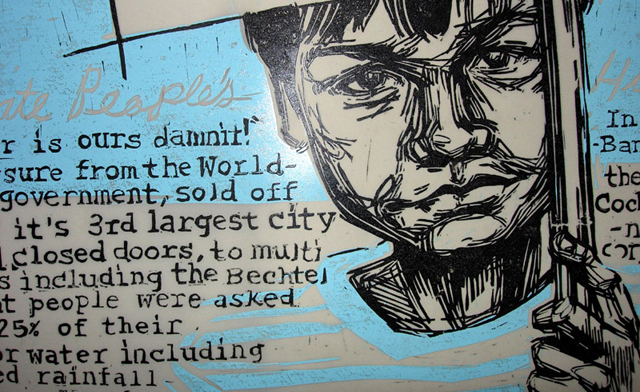 People's
r is ours damnit!
sure from the World-
government, sold off
it's 3rd largest city
closed doors, to multi
s including the Bechtel
t people were asked
25% of their
or water including
ed rainfall
In
-Ban
the
Coc
-n
cor